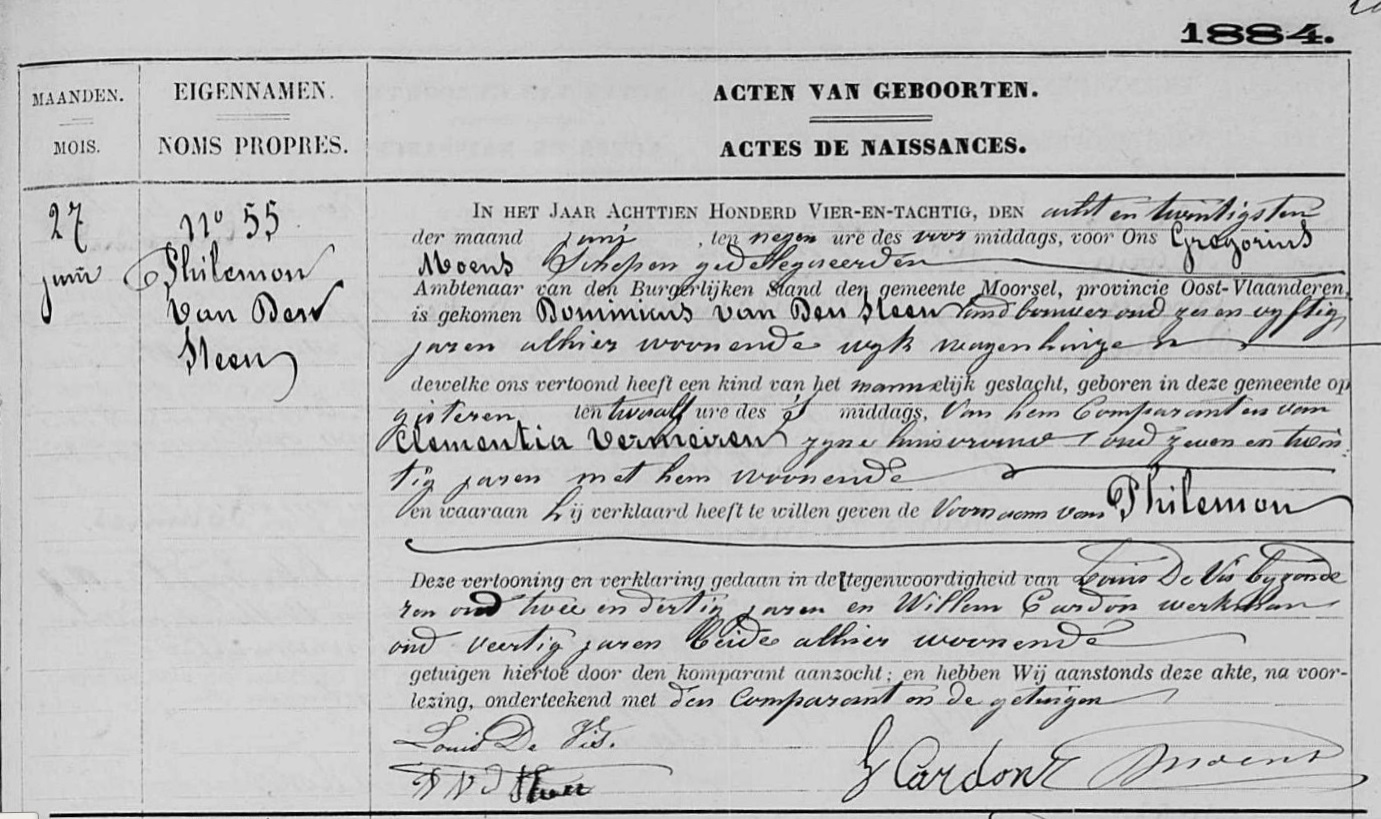 1884.
MAANDEN.
MOIS.
EIGENNAMEN.
NOMS PROPRES.
ACTEN VAN GEBOORTEN.
ACTES DE NAISSANCES.
27
juni
No 55
Philemon
Van Den
Steen
IN HET JAAR ACHTTIEN HONDERD VIER-EN-TACHTIG, DEN acht en twintigsten
der maand junij, ten negen ure des voor middags, voor Ons Gregorius
Moens Schepen gedelegueerden
Ambtenaar van den Burgerlijken Stand den gemeente Moorsel, provincie Oost-Vlaanderen,
is gekomen Dominicus Van Den Steen landbouwer oud zes en vyftig
jaren alhier woonende wyk wagenhuize
dewelke ons vertoond heeft een kind van het mannelijk geslacht, geboren in deze gemeente op
gisteren ten twaalf ure des 's middags, van hem Comparant en van
Clementia Vermeiren zyne huisvrouw oud zeven en twin-
tig jaren met hem woonende
en waaraan hij verklaard heeft te willen geven de Voornaam van Philemon
Deze vertooning en verklaring gedaan in de tegenwoordigheid van Louis De Vis byzonde
ren oud twee en dertig jaren en Willem Cardon werkman
oud veertig jaren beide alhier woonende
getuigen hiertoe door den komparant aanzocht; en hebben Wij aanstonds deze akte, na voor-
lezing, onderteekend met den Comparant en de getuigen
Louis De Vis.
G Cardon Moens
Steen